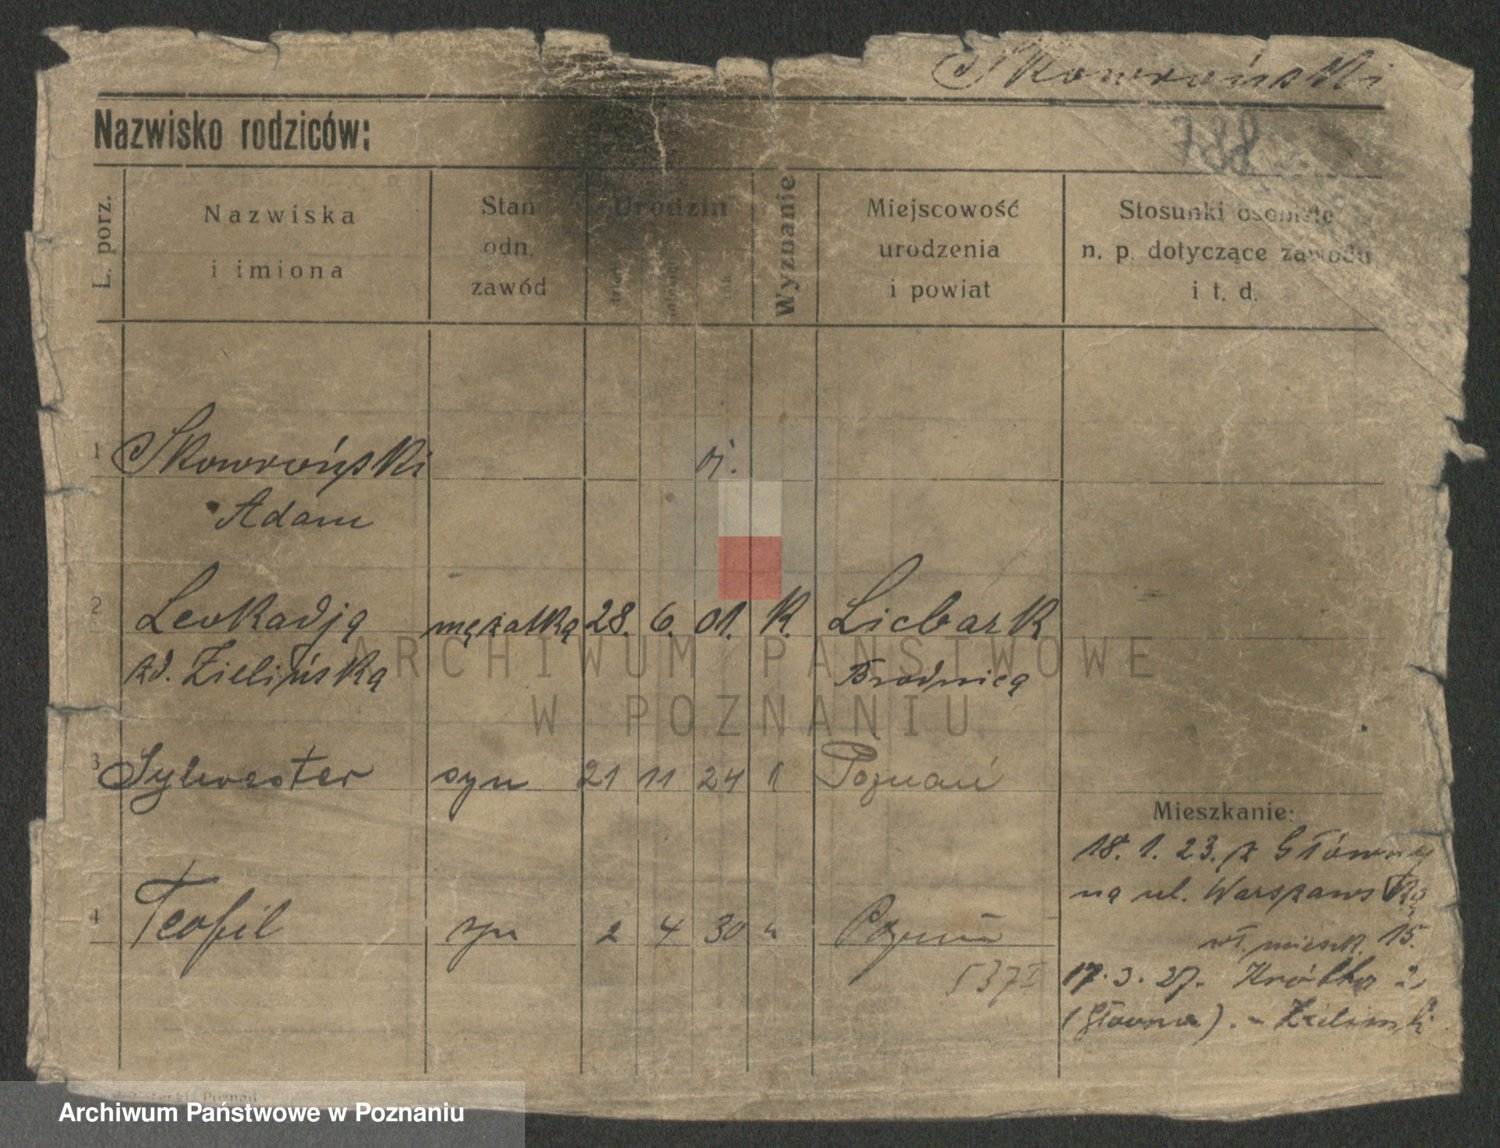 Skowroński
Nazwisko rodziców:
788
L. porz.
Nazwiska
i imiona
Stan
odn.
zawód
Urodzin
Wyznanie
Miejscowość
urodzenia
i powiat
Stosunki osobiste
n. p. dotyczące zawodu
i t. d.
1 Skowroński
Adam
2 Leokadja mężatka 28. 6. 01. K. Licbark
zd. Zielińska Brodnica
3 Sylwester syn 21 11 24 Poznań
4 Teofil syn 2 4 30 " Poznań
537
Mieszkanie:
18. 1. 23. z Główny
na ul. Warszawską
wł. mieszk. 15.
17. 3. 27. Krótka 2,
(Główna). - Zielinski
ARCHIWUM PAŃSTWOWE
W POZNANIU
Archiwum Państwowe w Poznaniu